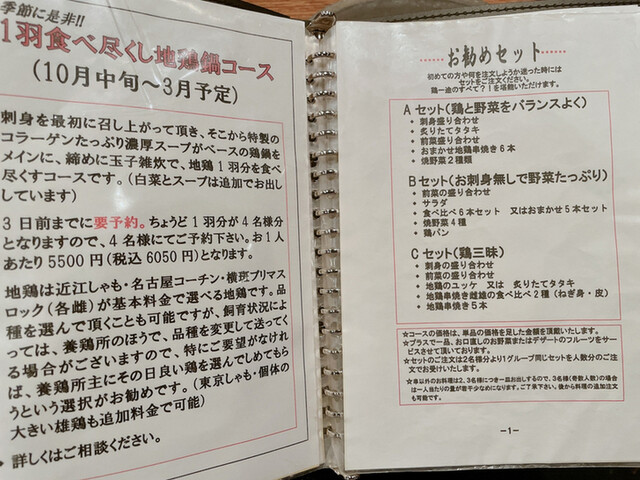 季節に是非!!
1羽食べ尽くし地鶏鍋コース
(10月中旬～3月予定)
刺身を最初に召し上がって頂き、そこから特製の
コラーゲンたっぷり濃厚スープがベースの鶏鍋を
メインに、締めに玉子雑炊で、地鶏1羽分を食べ
尽くすコースです。(白菜とスープは追加でお出し
しています)
3日前までに要予約。ちょうど1羽分が4名様分
となりますので、4名様にてご予約下さい。お1人
あたり5500円(税込6050円)となります。
地鶏は近江しゃも・名古屋コーチン・横斑プリマス
ロック(各雌)が基本料金で選べる地鶏です。品
種を選んで頂くことも可能ですが、飼育状況によ
っては、養鶏所のほうで、品種を変更して送ってく
る場合がございますので、特にご要望がなけれ
ば、養鶏所主にその日良い鶏を選んでしめてもら
うという選択がお勧めです。(東京しゃも・個体の
大きい雄鶏も追加料金で可能)
詳しくはご相談ください。
お勧めセット
初めての方や何を注文しようか迷った時には
セットをご注文ください。
鶏一途のすべて?!を堪能いただけます。
Aセット(鶏と野菜をバランスよく)
・ 刺身盛り合わせ
・ 炙りたてタタキ
・ 前菜盛り合わせ
・ おまかせ地鶏串焼き6本
・ 焼野菜2種類
Bセット(お刺身無しで野菜たっぷり)
・ 前菜の盛り合わせ
・ サラダ
・ 食べ比べ6本セット 又はおまかせ5本セット
・ 焼野菜4種
・ 鶏パン
Cセット(鶏三昧)
・ 刺身の盛り合わせ
・ 前菜の盛り合わせ
・ 地鶏のユッケ 又は 炙りたてタタキ
・ 地鶏串焼き雌雄の食べ比べ2種(ねぎ身・皮)
・ 地鶏串焼き5本
☆コースの価格は、単品の価格を足した金額を頂戴いたします。
☆プラスで一品、お口直しのお野菜またはデザートのフルーツをサー
ビスさせて頂いております。
☆セットのご注文は2名様分より1グループ同じセットを人数分のご注
文でお受けいたします。
☆串以外のお料理は2、3名様につき一皿お出しするので、3名様(奇数人数)の場合
は一人当たりの量が若干少なめになります。ご了承下さい。後から料理の追加注文
も可能です。
－1－